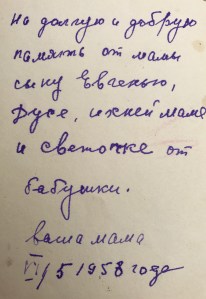 На долгую и добрую
память от мамы
сыну Евгенью,
Дусе, ихней маме
и светочке от
бабушки.
ваша мама
VI/5 1958 года